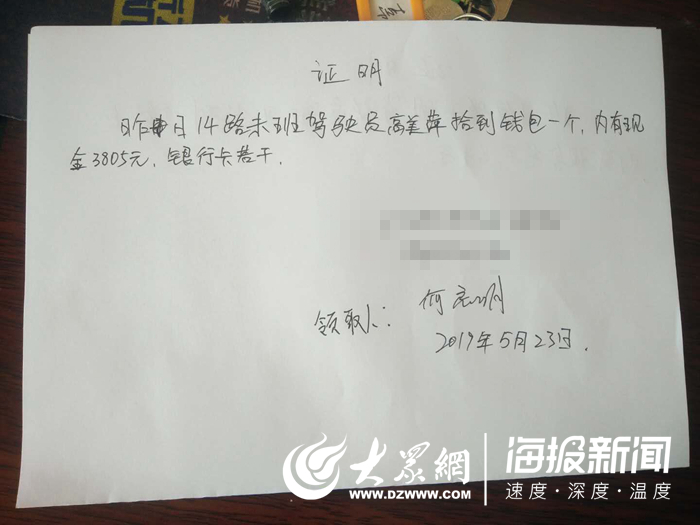 证明
昨日14路末班驾驶员高美萍拾到钱包一个,内有现
金3805元,银行卡若干.
领取人:何
2019年5月23日.
大众網
WWW.DZWWW.COM
海报新闻
速度·深度·温度